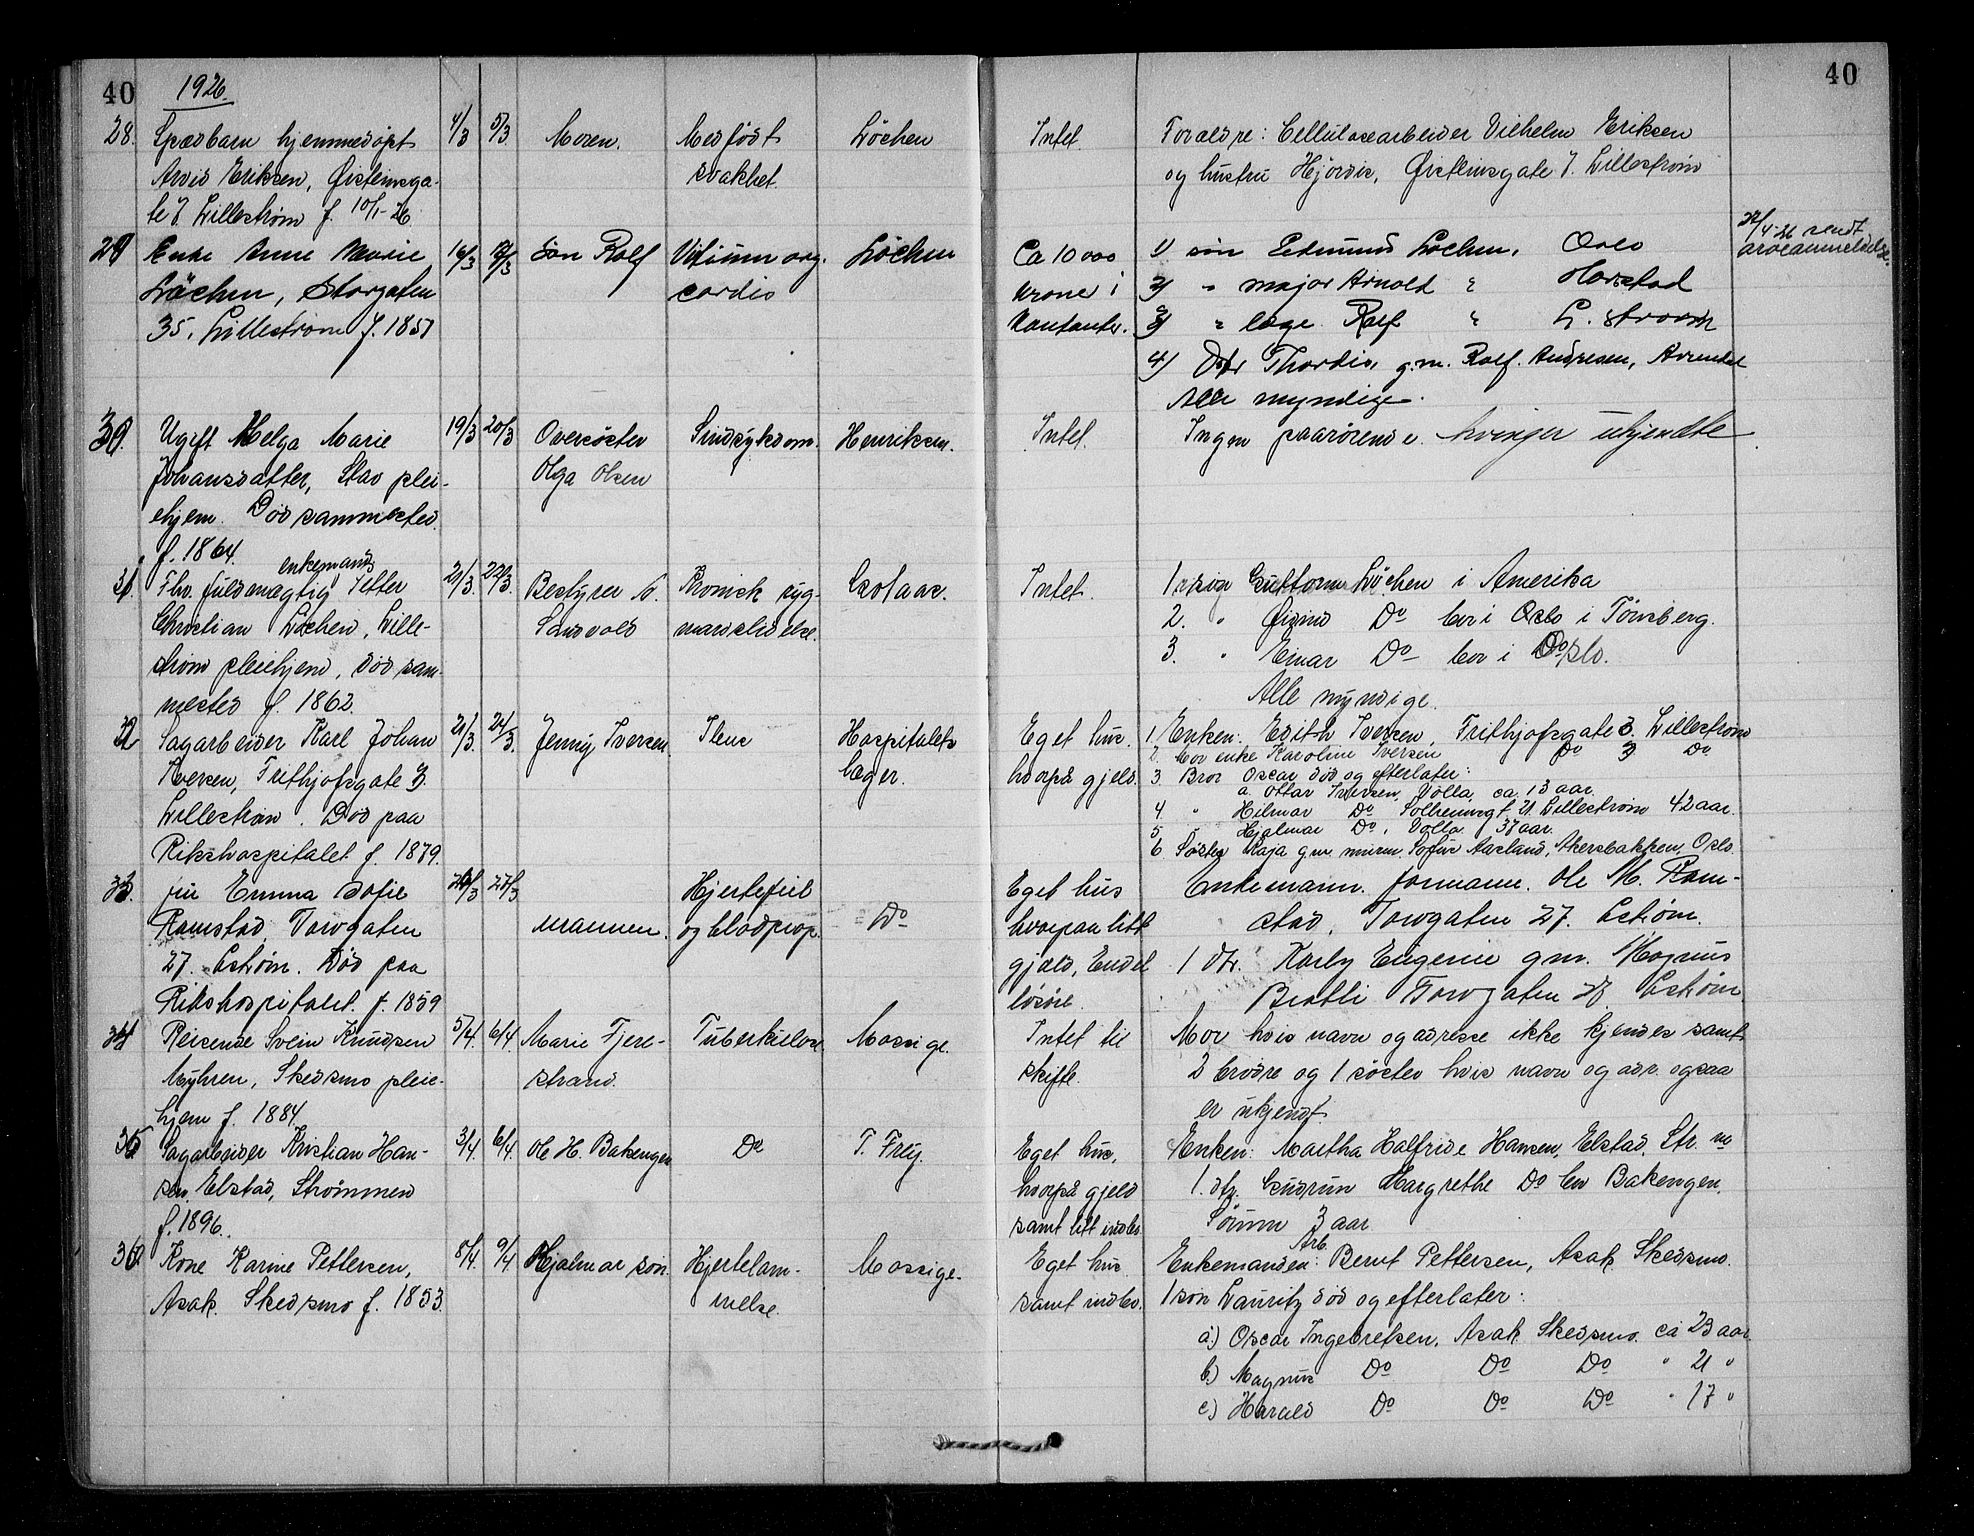 40
1926.
40
28. Spædbarn hjemmedøpt 4/3 5/3 Moren. Medfødt Løchen Intet. Forældre: Cellulosearbeider Vilhelm Eriksen
Arvid Eriksen, Øisteinsga- svakhet. og hustru Hjørdis, Øisteinsgate 7. Lillestrøm
te 7 Lillestrøm f. 10/1-26
29 Enke Anne Marie 16/3 17/3 Søn Rolf Vitium org. Løchen Ca 10000 1) søn Edmund Løchen, Oslo sendt
Løchen, Storgaten cordis kroner i 2) " major Arnold " Harstad
35. Lillestrøm f. 1851 kontanter. 3) " læge Rolf " L. strøm
4) Dtr Thordis, g.m. Rolf. Andresen, Arendal
Alle myndige.
30. Ugift Helga Marie 19/3 20/3 Oversøster Sindsykdom. Henriksen. Intet. Ingen paarørende. arvinger ukjendte
Johansdatter, Stav plei- Olga Olsen
ehjem. Død sammested.
f. 1864.
enkemand
31. Fhv. fuldmægtig Petter 21/3. 22/3. Bestyrer Kronisk ryg- Intet. 1 søn Guttorm Løchen i Amerika
Christian Løchen, Lille- Sandvold marvslidelse. 2. " Øivind Do bor i Oslo i Tønsberg.
strøm pleiehjem, død sam- 3. " Einar Do bor i Oslo.
mested f. 1862. Alle myndige.
32 Sagarbeider Karl Johan 21/3. 24/3. Jenny Iversen Ileus Hospitalets Eget hus. 1. Enken: Edith Iversen, Frithjofsgate 3. Lillestrøm
Iversen, Frithjofsgate 3. læger. hvorpå gjeld. 2. Mor enke Karoline Iversen Do 3 Do
3 Bror Oscar død og efterlater:
a. Ottar Iversen, Volla, ca. 13 aar.
Lillestrøm. Død paa 4. " Hilmar Do Lillestrøm 42 aar.
5. " Hjalmar Do, Volla 37 aar.
Rikshospitalet f. 1879. 6 Søster Kaja g.m. Aasland, Akersbakken, Oslo.
33. fru Emma Sofie 26/3 27/3 Hjertefeil Eget hus Enkemann. formann. Ole M. Ram-
Ramstad Torvgaten mannen. og blodprop. Do hvorpaa litt stad, Torvgaten 27. Lstrøm.
27. Lstrøm. Død paa gjæld, Endel 1 dtr. Karly Eugenie g.m. Magnus
Rikshospitalet f. 1859 løsøre. Torvgaten 27 Lstrøm
34 Reisende Svein Knudsen 5/4. 6/4. Marie Fjere- Tuberkulose Mossige. Intet til Mor hvis navn og adresse ikke kjendes samt
Myhren, Skedsmo pleie- strand. skifte. 2 brødre og 1 søster hvis navn og adr. ogsaa
hjem f. 1884. er ukjendt.
35. Sagarbeider Kristian Han- 3/4. 6/4. Ole H. Bakengen Do T. Frey. Eget hus, Enken: Martha Halfride Hansen, Elstad, Str. m
sen, Elstad, Strømmen hvorpå gjeld 1. dtr. Gudrun Margrethe Do bor Bakengen,
f. 1896. samt litt indbo Sørum 3 aar
36. Kone Karine Pettersen, 8/4. 9/4 Hjalmar søn Hjertelam- Mossige. Eget hus Enkemanden: Arb. Bernt Pettersen, Asak Skedsmo.
Asak. Skedsmo f. 1853. melse. samt indbo. 1 søn Lauritz død og efterlater:
a) Oscar Ingebretsen, Asak Skedsmo ca 23 aar
b.) Magnus Do Do Do " 21 "
c) Harald Do Do Do " 17 "